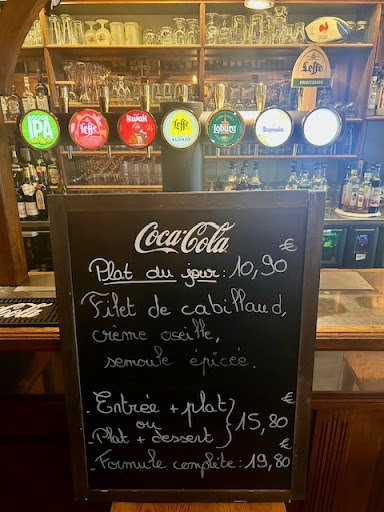 Leffe
PRINTEMPS
IPA
Leffe
KWAK
Leffe
BLONDE
LOBURG
Coca-Cola
€
Plat du jour : 10,90
Filet de cabillaud,
crème oseille,
semoule épicée.
- Entrée + plat €
ou } 15,80
- Plat + dessert €
- Formule complète : 19,80